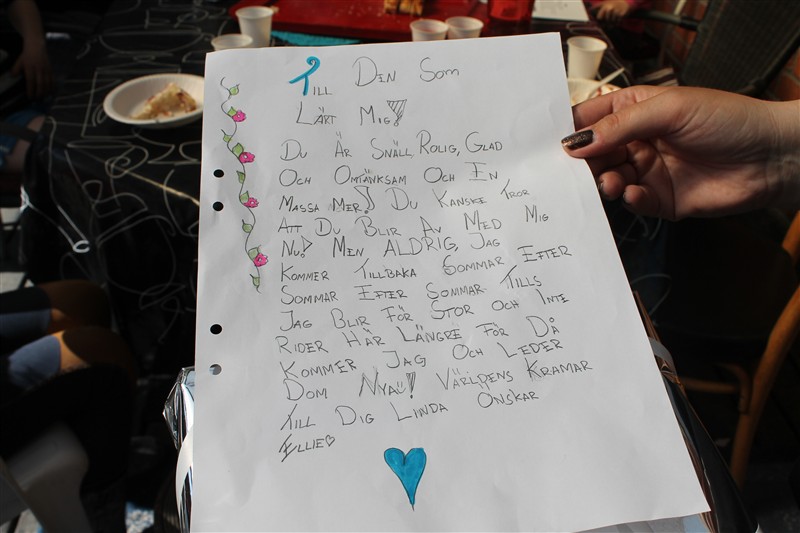 TILL DEN SOM
LÄRT MIG!
DU ÄR SNÄLL, ROLIG, GLAD
OCH OMTÄNKSAM OCH EN
MASSA MER! DU KANSKE TROR
ATT DU BLIR AV MED MIG
NU? MEN ALDRIG, JAG
KOMMER TILLBAKA SOMMAR EFTER
SOMMAR EFTER SOMMAR TILLS
JAG BLIR FÖR STOR OCH INTE
RIDER HÄR LÄNGRE FÖR DÅ
KOMMER JAG OCH LEDER
DOM NYA!! VÄRLDENS KRAMAR
TILL DIG LINDA ÖNSKAR
ELLIE♡